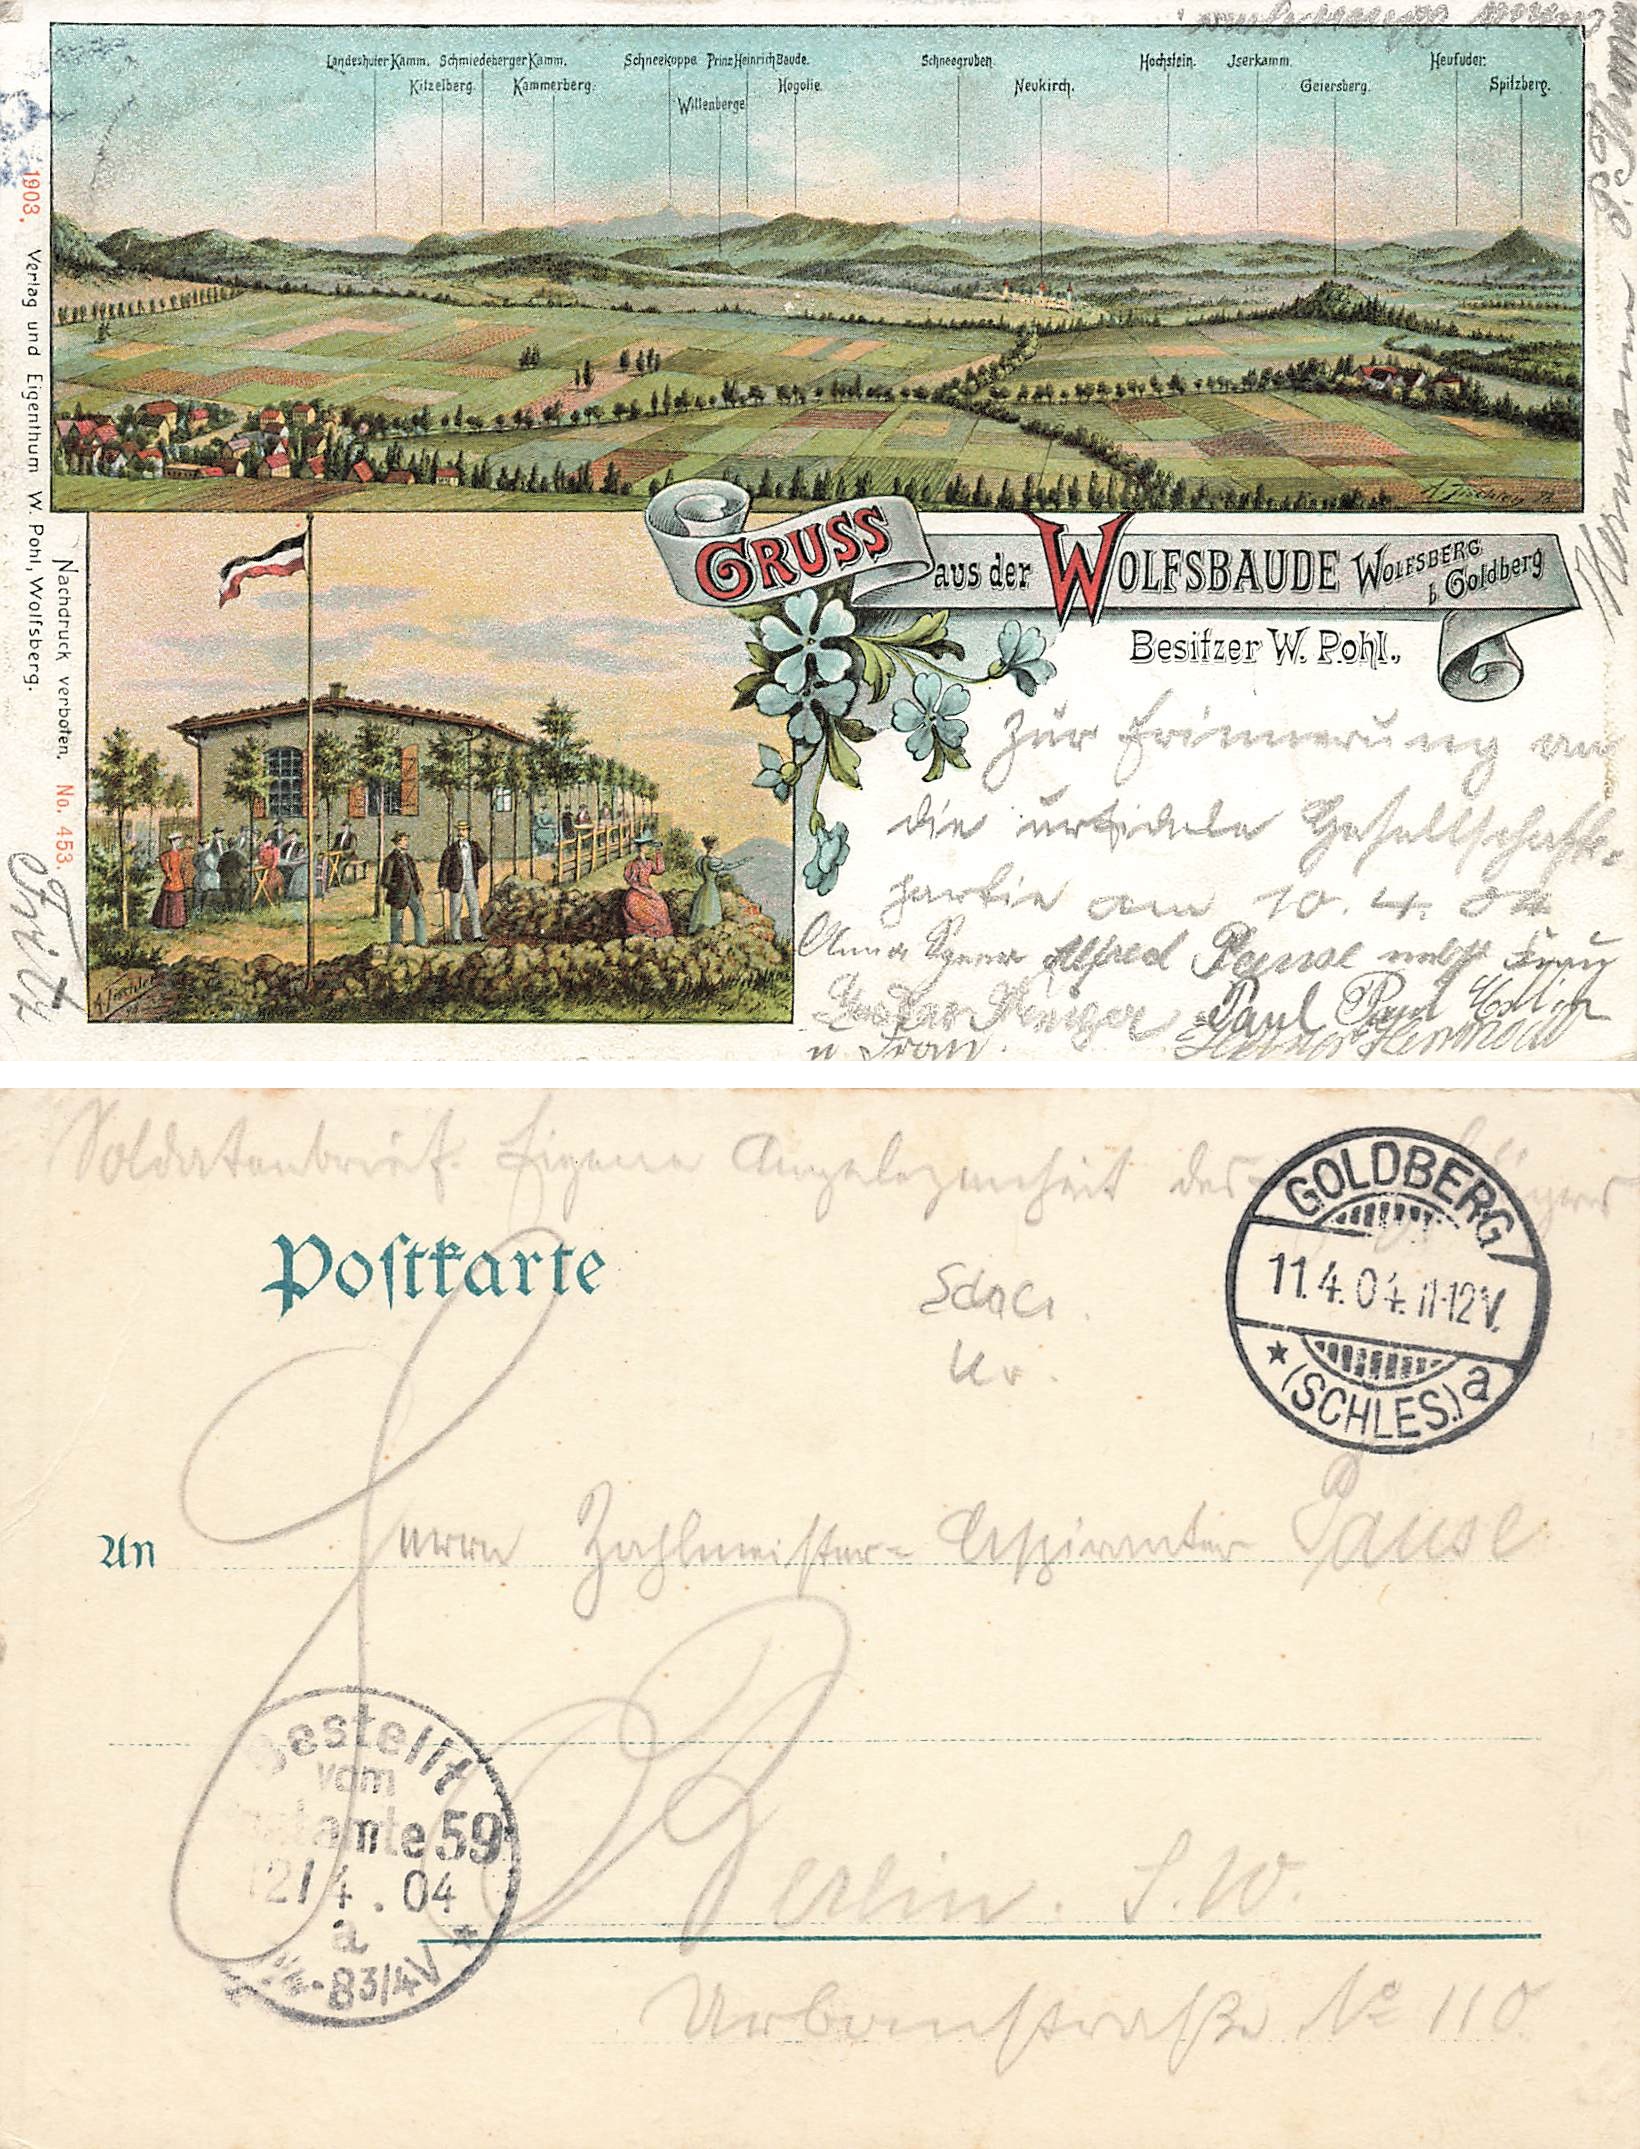 Landeshuter Kamm. Schmiedeberger Kamm. Schneekoppe Prinz Heinrich Baude. Schneegruben. Hochstein. Iserkamm. Heufuder.
Kitzelberg. Kammerberg. Hogolie. Neukirch. Geiersberg. Spitzberg.
Willenberge
1903. Verlag und Eigenthum W. Pohl, Wolfsberg.
Nachdruck verboten. No. 453.
GRUSS aus der WOLFSBAUDE WOLFSBERG
b Goldberg
Besitzer W. Pohl.
Zur Erinnerung an
die urfidele Gesellschafts-
partie am 10. 4. 04
Anna Alfred Pause nebst Frau
Gustav Paul
u. Frau.
Fritz
Hermann
Soldatenbrief. Eigene Angelegenheit des
Postkarte
GOLDBERG
11.4.04. 11-12V.
* (SCHLES.) a
An Herrn Zahlmeister-Aspiranten Pause
Bestellt
vom
Postamte 59
12/4.04
a
83/4V *
Berlin. S.W.
Urbanstraße No 110